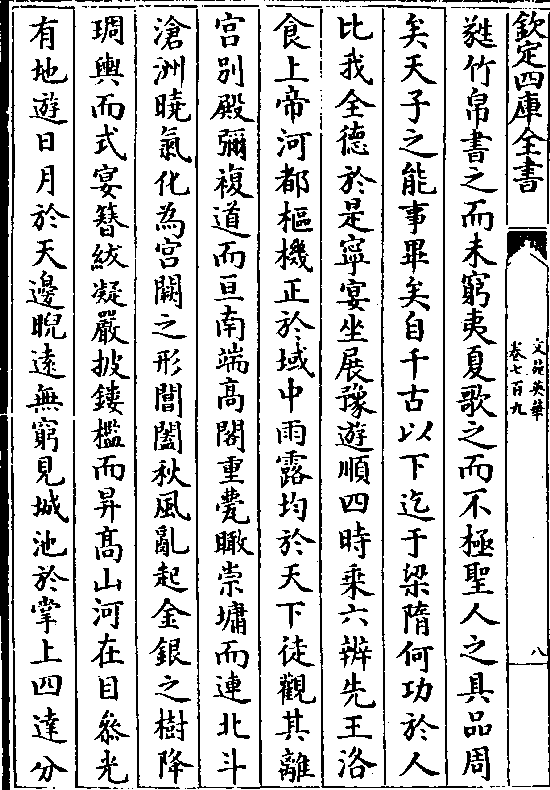 欽定四庫全書
文苑英華
卷七百九
八
蕤竹帛書之而未窮夷夏歌之而不極聖人之具品周
矣天子之能事畢矣自千古以下迄于梁隋何功於人
比我全德於是寧宴坐展豫遊順四時乘六辨先王洛
食上帝河都樞機正於域中雨露均於天下徒觀其離
宫别殿彌複道而亘南端髙閣重甍瞰崇墉而連北斗
滄洲曉氣化為宫闕之形閶闔秋風亂起金銀之樹降
琱輿而式宴簪紱凝嚴披鏤檻而昇髙山河在目叅光
有地遊日月於天邊睨遠無窮見城池於掌上四達分